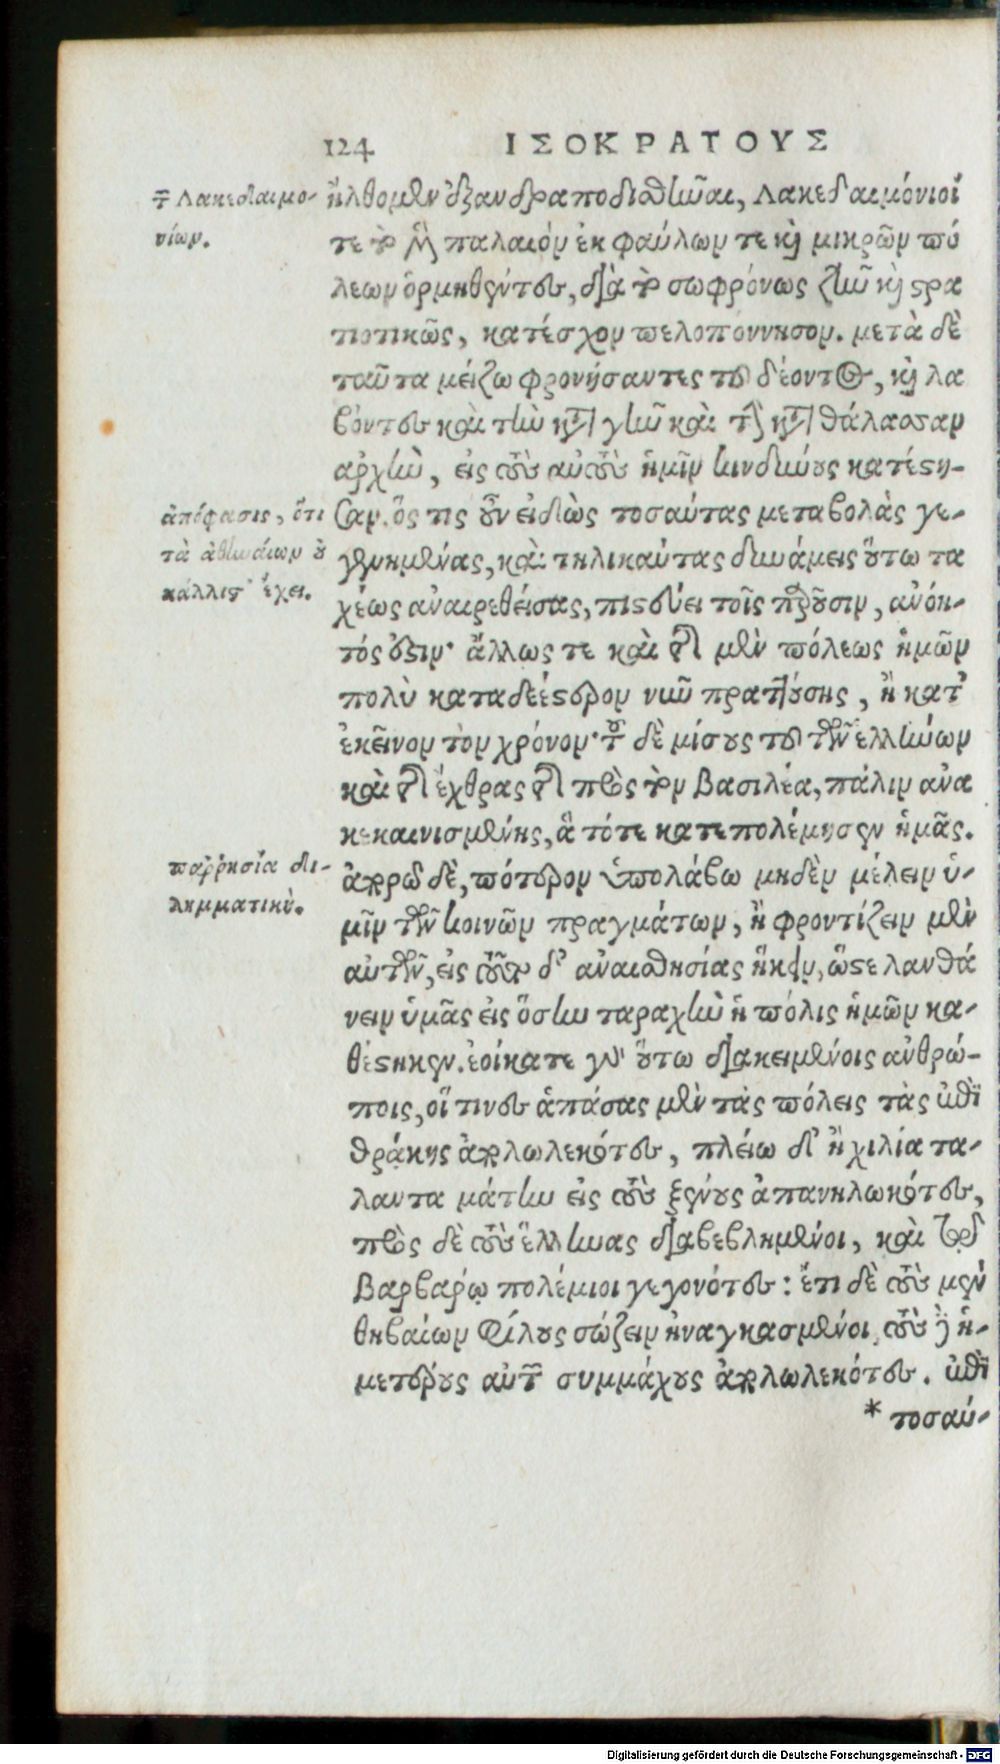 124 ΙΣΟΚΡΑΤΟΥΣ
τ̃ Λακεδαιμο-
νίων.
ἤλθομεν ἐξανδραποδισθῆναι, Λακεδαιμόνιοί
τε τὸ μὲν παλαιὸν ἐκ φαύλων τε καὶ μικρῶν πό
λεων ὁρμηθέντες, διὰ τὸ σωφρόνως ζῆν καὶ στρα
τιοτικῶς, κατέσχον πελοπόννησον. μετὰ δὲ
ταῦτα μείζω φρονήσαντες τοῦ δέοντος, καὶ λα
βόντες καὶ τὴν κατὰ γῆν καὶ τὴν κατὰ θάλασσαν
ἀρχὴν, εἰς τοὺς αὐτοὺς ἡμῖν κινδύνους κατέστη-
ἀπόφασις, ὅτι
τὰ ἀθηναίων οὐ
κάλλιστ' ἔχει.
σαν. ὅς τις οὖν εἰδὼς τοσαύτας μεταβολὰς γε-
γενημένας, καὶ τηλικαύτας δυνάμεις οὕτω τα
χέως ἀναιρεθείσας, πιστεύει τοῖς παροῦσιν, ἀνόη-
τός ἐστιν· ἄλλως τε καὶ τῆς μὲν πόλεως ἡμῶν
πολὺ καταδεέστερον νῦν πραττούσης, ἢ κατ'
ἐκεῖνον τὸν χρόνον· τοῦ δὲ μίσους τοῦ τῶν ἑλλήνων
καὶ τῆς ἔχθρας τῆς πρὸς τὸν Βασιλέα, πάλιν ἀνα
κεκαινισμένης, ἃ τότε κατεπολέμησεν ἡμᾶς.
παῤῥησία δι-
λημματικὴ.
ἀπορῶ δὲ, πότερον ὑπολάβω μηδὲν μέλειν ὑ-
μῖν τῶν κοινῶν πραγμάτων, ἢ φροντίζειν μὲν
αὐτῶν, εἰς τοῦτο δ' ἀναισθησίας ἥκειν, ὥστε λανθά
νειν ὑμᾶς εἰς ὅσην ταραχὴν ἡ πόλις ἡμῶν κα-
θέστηκεν. ἐοίκατε γὰρ οὕτω διακειμένοις ἀνθρώ-
ποις, οἵ τινες ἁπάσας μὲν τὰς πόλεις τὰς ἐπὶ
θρᾴκης ἀπολωλεκότες, πλείω δ' ἢ χιλία τά-
λαντα μάτην εἰς τοὺς ξένους ἀπανηλωκότες,
πρὸς δὲ τοὺς ἕλληνας διαβεβλημένοι, καὶ τῷ
Βαρβάρῳ πολέμιοι γεγονότες: ἔτι δὲ τοὺς μὲν
θηβαίων φίλους σώζειν ἠναγκασμένοι, τοὺς δ' ἡ-
μετέρους αὐτῶν συμμάχους ἀπολωλεκότες. ἐπὶ
* τοσαύ-
Digitalisierung gefördert durch die Deutsche Forschungsgemeinschaft - DFG